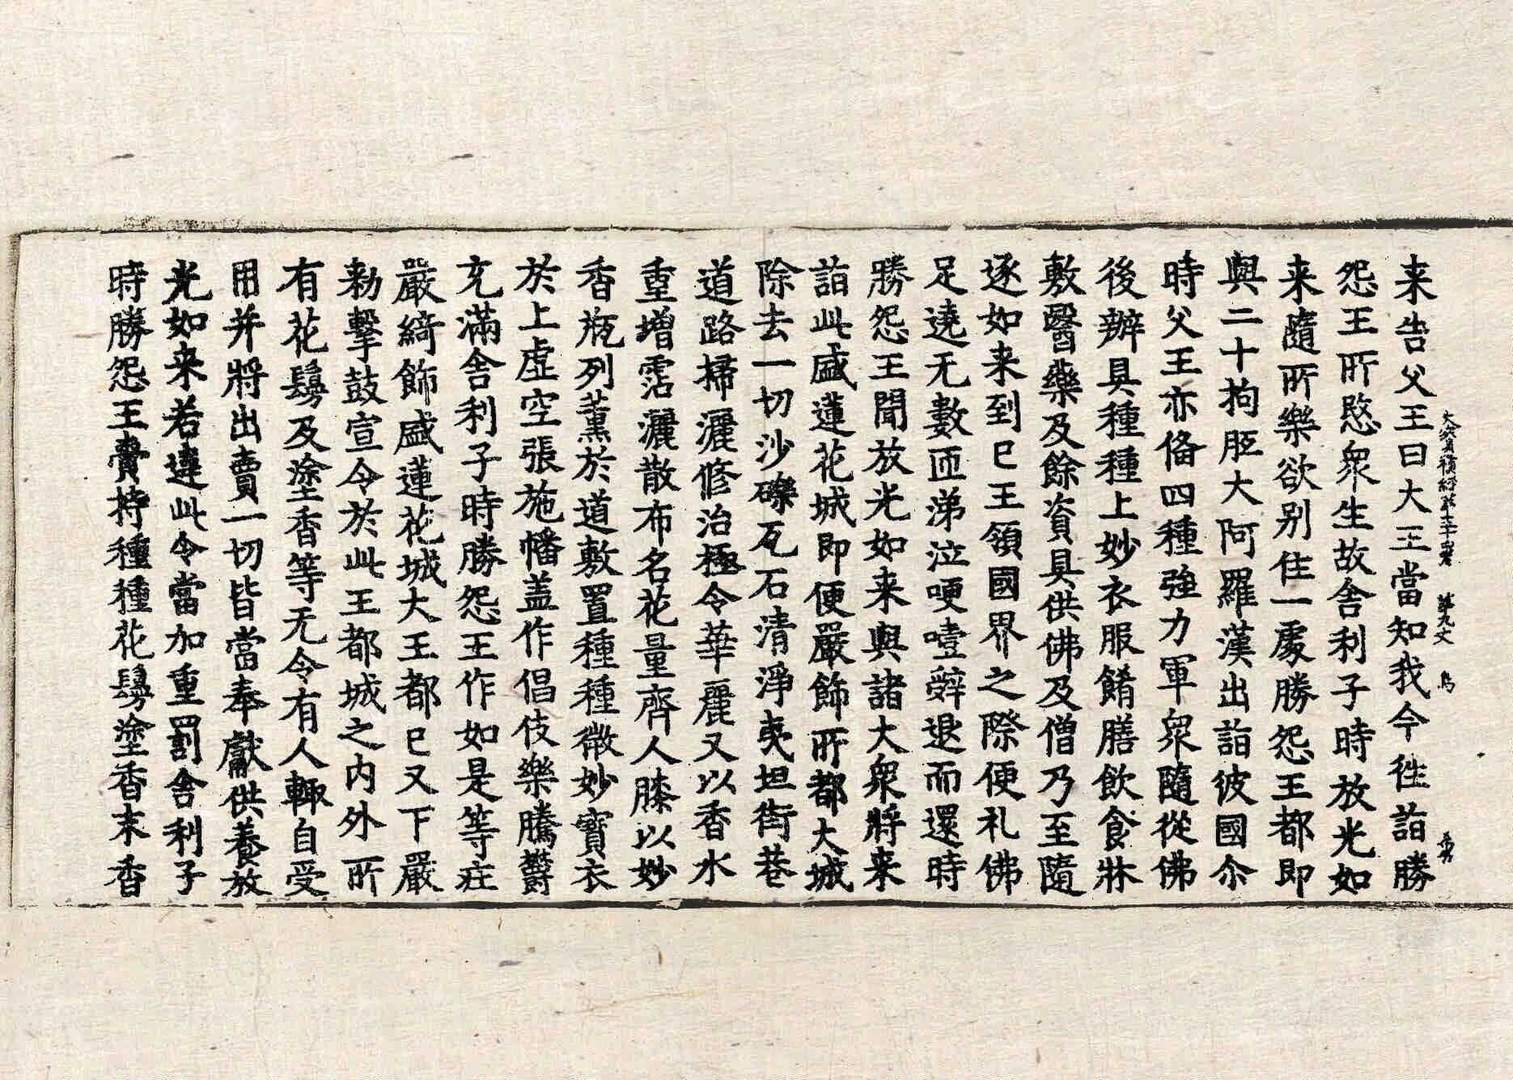 来告父王曰大王當知我今徃詣勝
怨王所愍衆生故舍利子時放光如
来隨所樂欲别住一處勝怨王都即
與二十拘胝大阿羅漢出詣彼國尒
時父王亦俻四種強力軍衆隨從佛
後辦具種種上妙衣服餚膳飲食牀
敷醫藥及餘資具供佛及僧乃至隨
逐如来到巳王領國界之際便礼佛
足遶无數匝涕泣哽噎辤退而還時
勝怨王聞放光如来與諸大衆將来
詣此盛蓮花城即便嚴飾所都大城
除去一切沙礫瓦石清淨夷坦街巷
道路掃灑修治極令華麗又以香水
重增霑灑散布名花量齊人膝以妙
香瓶列薰於道敷置種種微妙寳衣
於上虚空張施幡盖作倡伎樂騰欝
充滿舍利子時勝怨王作如是等庄
嚴綺飾盛蓮花城大王都巳又下嚴
勑擊鼓宣令於此王都城之内外所
有花鬘及塗香等无令有人輙自受
用并將出賣一切皆當奉獻供養放
光如来若違此令當加重罰舍利子
時勝怨王賷持種種花鬘塗香末香